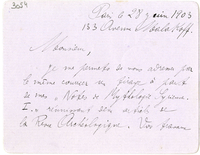 3054
Paris le 28 juin 1903
133 Avenue Malakoff
Monsieur,
Je me permets de vous adresser par
le même courrier un tirage à part
de mes Notes de Mythologie Syrienne
I. réunissant des articles de
la Revue Archéologique. Vos travaux